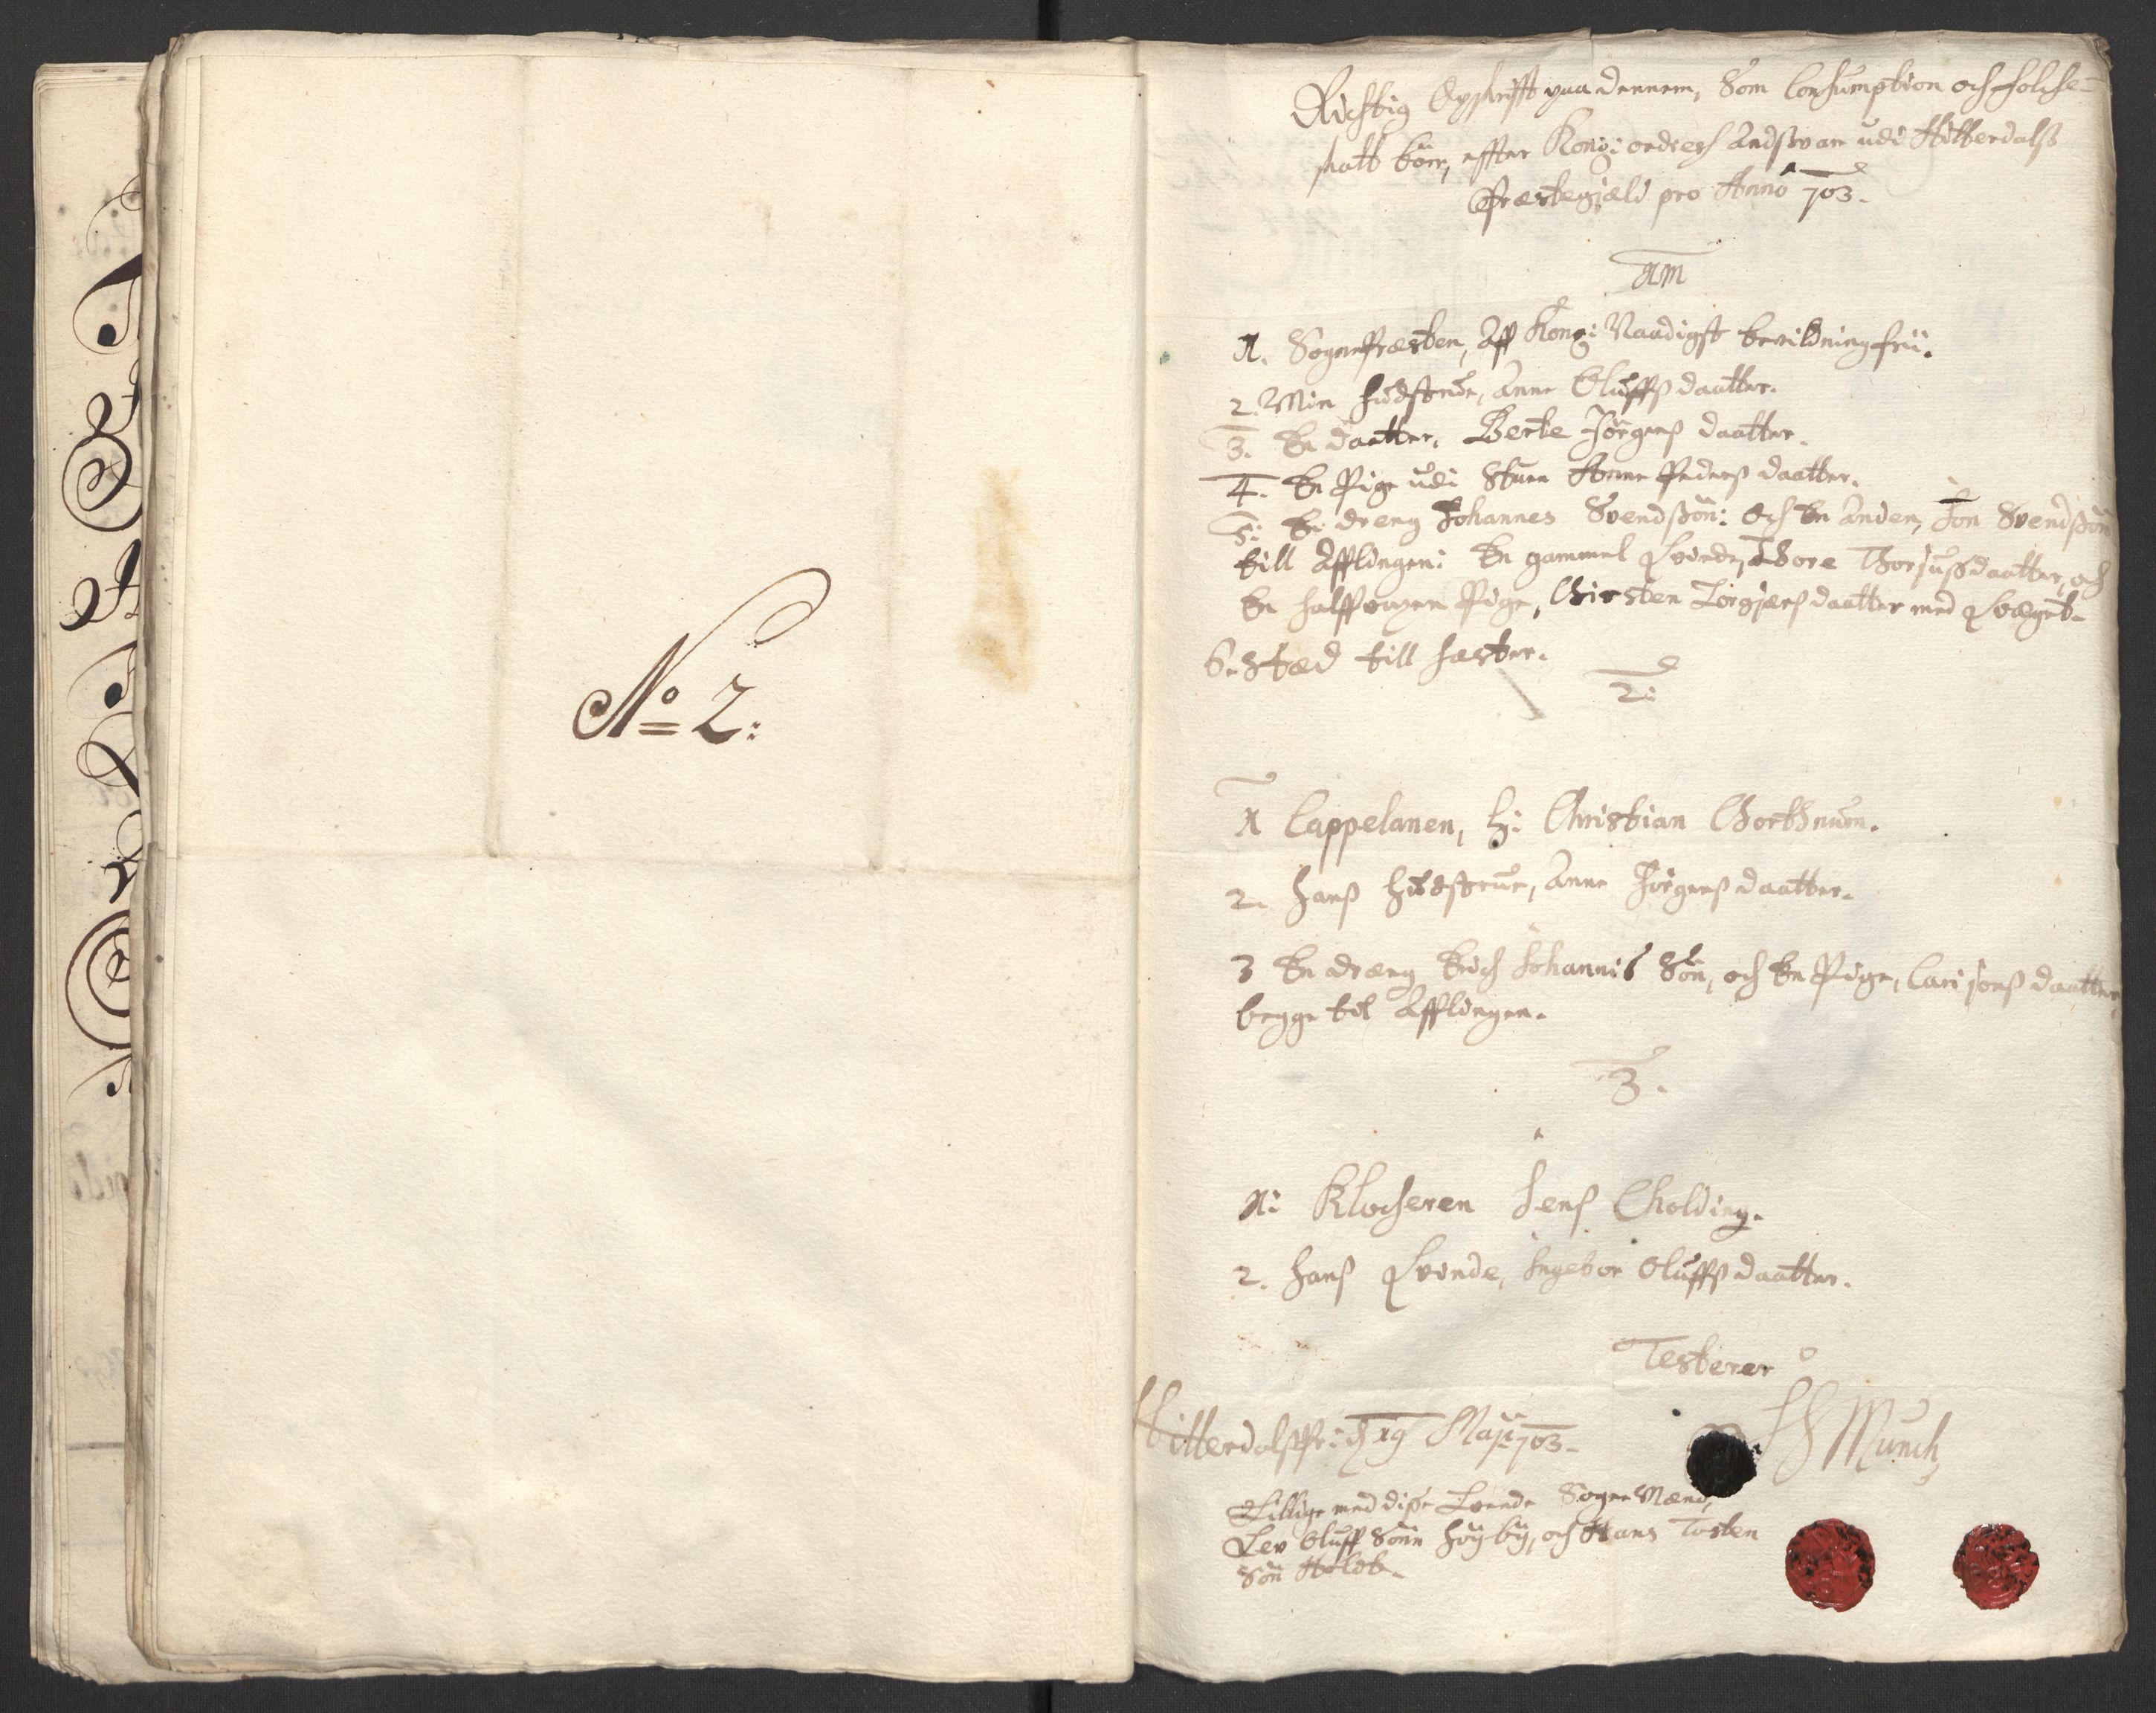 No 2:
Richtig Opskrifft paa dennem, Som Consumption och folche-
skatt bör, effter Kong: ordres Andsvar udi Hitterdalss
Præstegjæld pro Anno 703.
1. Sognepræsten, Aff Kong: Naadigst bevildning frü.
2. Min hüdstrue, Anne Oluffsdaatter.
3. En daatter, Berte Jörgens daatter.
4. En Pige udi Stuen Anne Peders daatter.
5: En dreng Johannes Svendssön: Och En Anden, Jon Svendssön
till Afflingen: En gammel qvinde, Thore Thorsussdaatter, och
En halffvoxen Pige, Chirsten Torgjærs daatter med qvæget.
6. Stæd till hæster.
2:
1 Cappelanen, hr: Christian
2. Hanss hüdstrue, Anne Jörgenss daatter.
3 En dræng Erich Johannis Sön, och En Pige, Cari jonss daatter,
begge til Afflingen.
3.
1: Klocheren Jens Cholding.
2. Hanss qvinde, Ingebor Oluffss daatter.
Testerer
Hitterdalss d 19 Maji 703.
Munch
Tillige med disse Tvende Sogne Mænd,
Lev Oluff Sönn Höyby, och Hans Tosten
Sön Holdt.